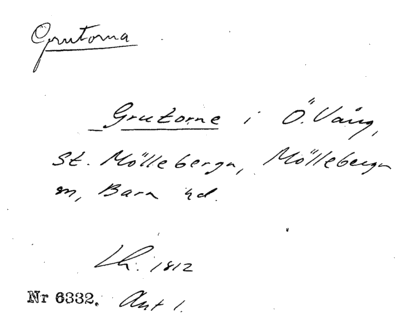 Grutorna
Grutorne i Ö. Vång,
St. Mölleberga, Mölleberga
sn, Bara hd.
Lh. 1812
Nr 6332. Akt 1.